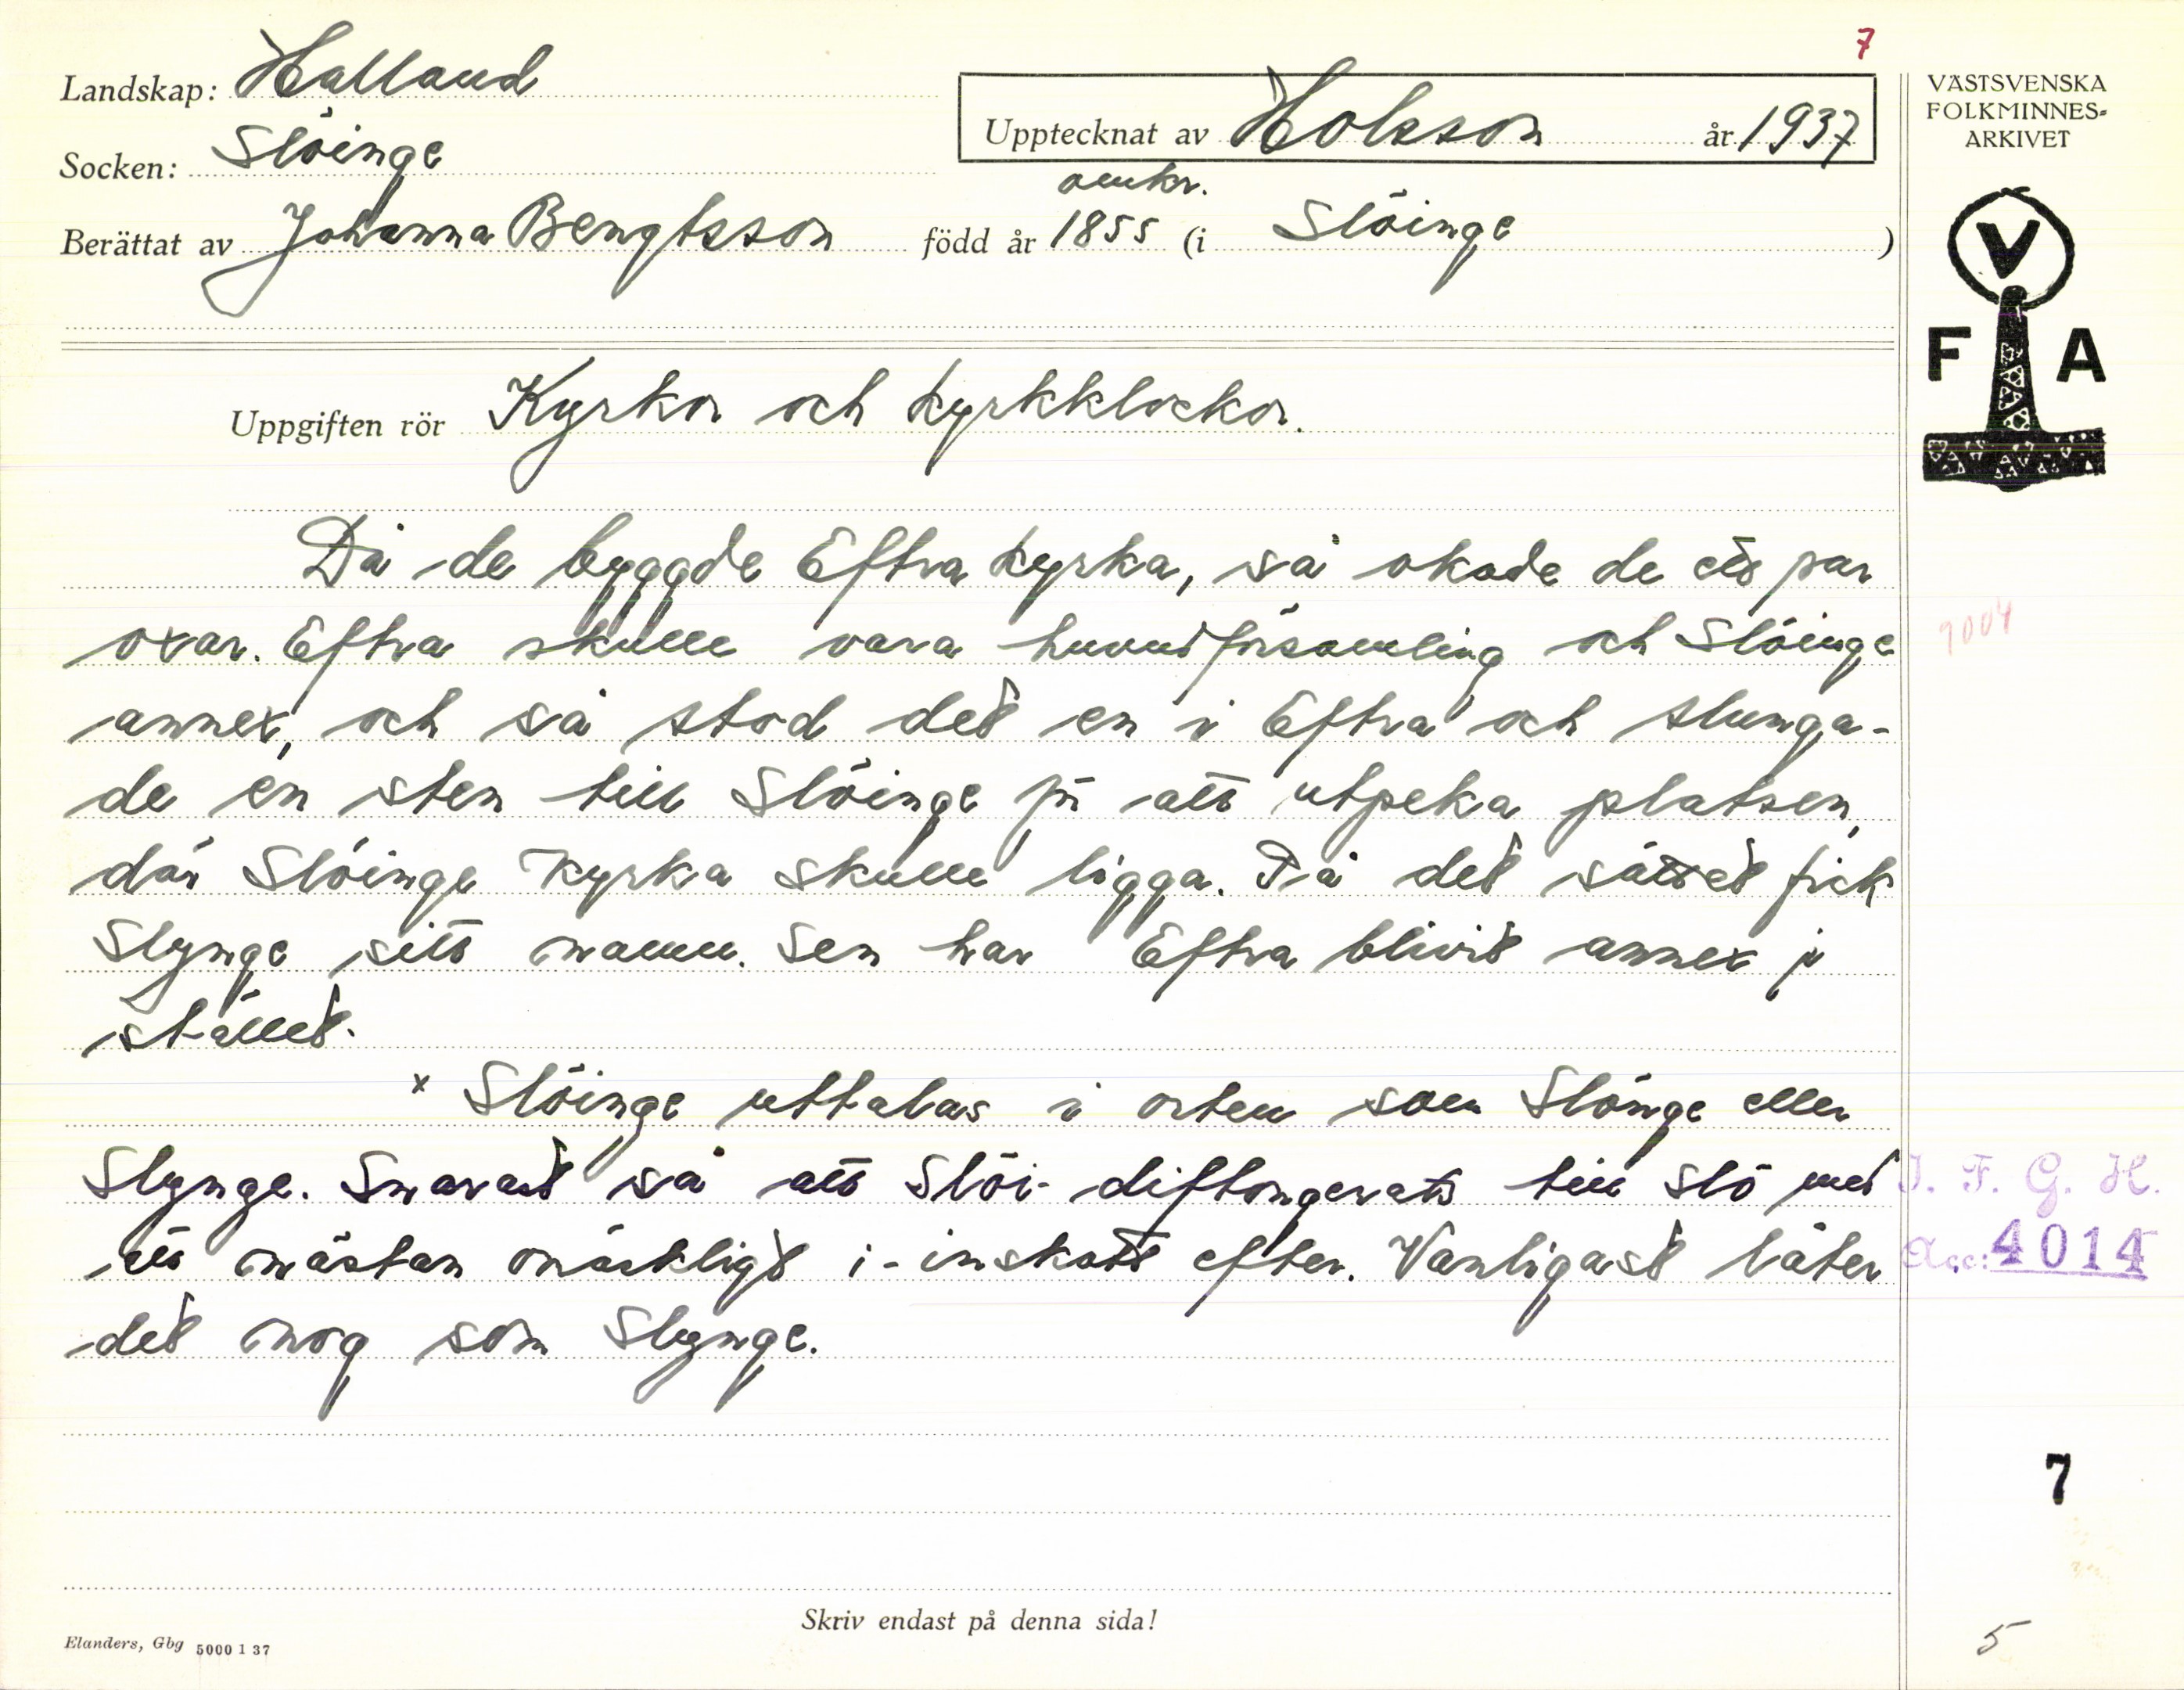 7
Landskap: Halland
Socken: Slöinge
Upptecknat av Holsson år 1937
VÄSTSVENSKA
FOLKMINNES-
ARKIVET
Berättat av Johanna Bengtsson född år omkr. 1855 (i Slöinge)
V
F A
Uppgiften rör Kyrkor och kyrkklockor.
Då de byggde Eftra kyrka, så okade de ett par
oxar. Eftra skulle vara huvudförsamling och Slöinge
annex, och så stod det en i Eftra och slunga-
de en sten till Slöinge för att utpeka platsen,
där Slöinge kyrka skulle ligga. På det sättet fick
Slynge sitt namn. Sen har Eftra blivit annex i
stället.
x Slöinge uttalas i orten som Slönge eller
Slynge. Snarast så att Slöi- diftongerats till slö med
ett nästan omärkligt i-inskott efter. Vanligast låter
det nog som Slynge.
1004
I. F. G. H.
Acc: 4014
7
Skriv endast på denna sida!
Elanders, Gbg 5000 1 37
5